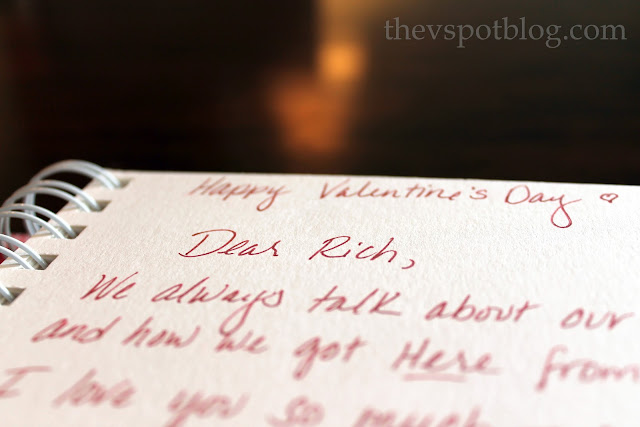 thevspotblog.com
Happy Valentine's Day ♡
Dear Rich,
We always talk about our
and how we got Here from
I love you so much